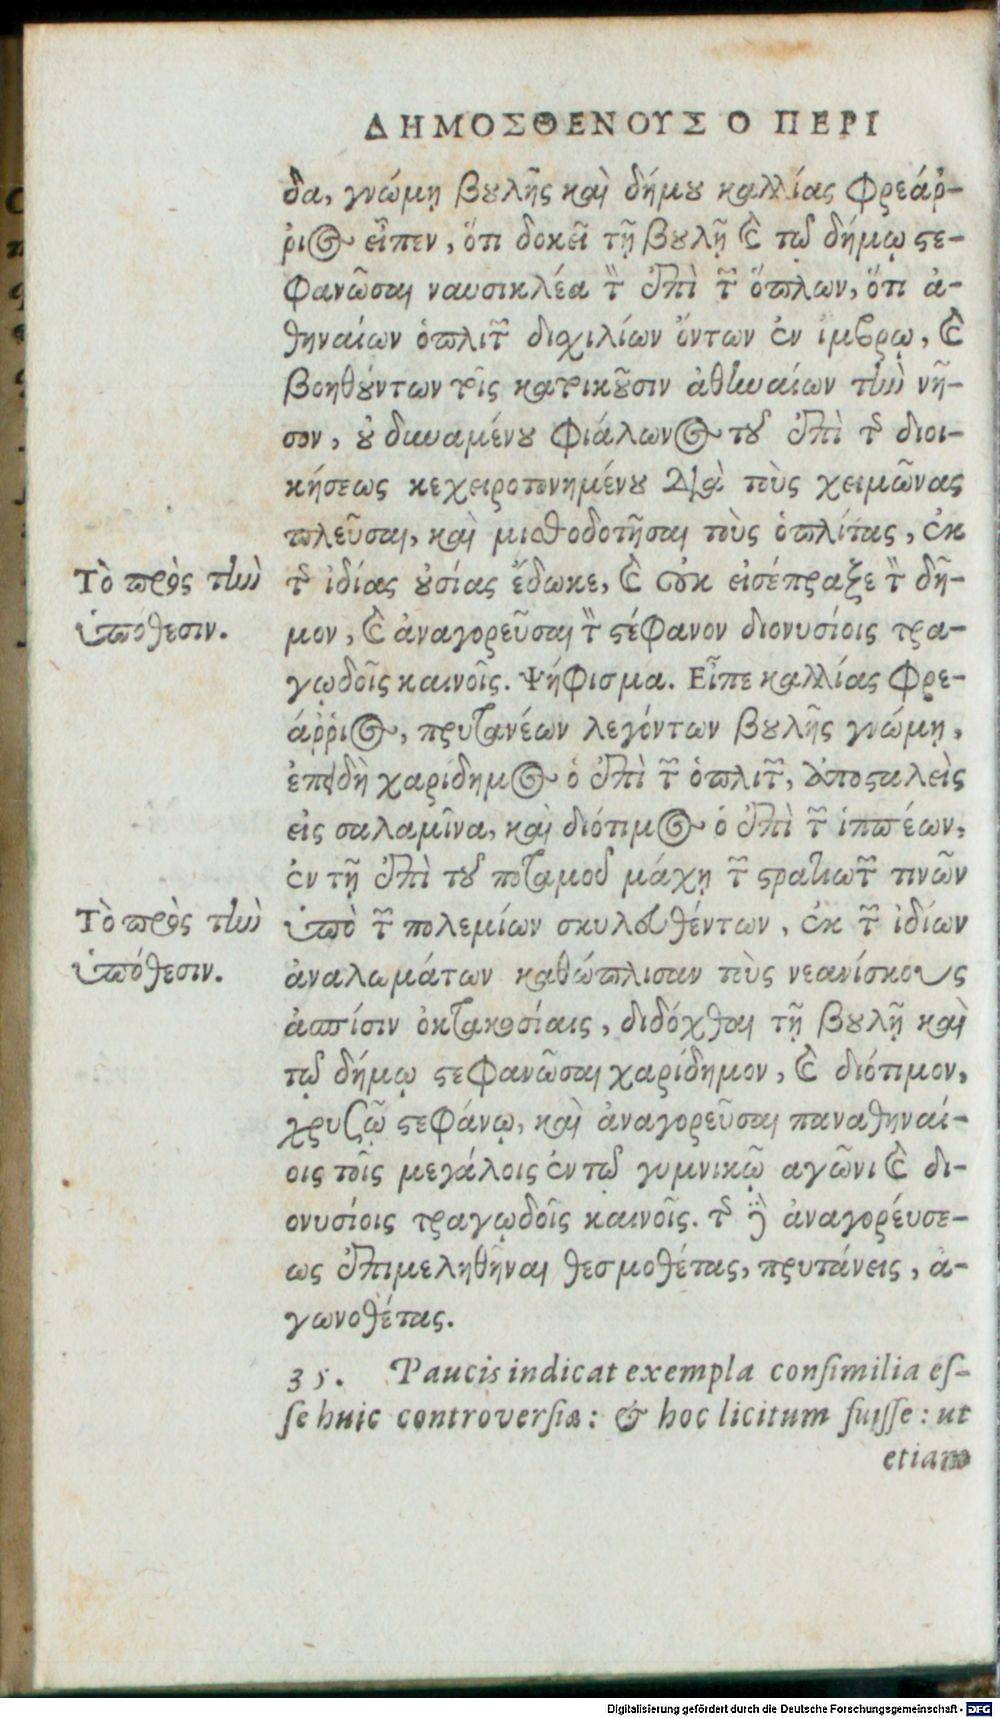 ΔΗΜΟΣΘΕΝΟΥΣ Ο ΠΕΡΙ
δα, γνώμῃ βουλῆς καὶ δήμου καλλίας Φρεάρ-
ριος εἶπεν, ὅτι δοκεῖ τῇ βουλῇ καὶ τῷ δήμῳ στε-
φανῶσαι ναυσικλέα τὸν ἐπὶ τῶν ὅπλων, ὅτι ἀ-
θηναίων ὁπλιτῶν διχιλίων ὄντων ἐν ἴμβρῳ, καὶ
βοηθούντων τοῖς κατοικοῦσιν ἀθηναίων τὴν νῆ-
σον, οὐ δυναμένου φιάλωνος τοῦ ἐπὶ τῆς διοι-
κήσεως κεχειροτονημένου διὰ τοὺς χειμῶνας
πλεῦσαι, καὶ μισθοδοτῆσαι τοὺς ὁπλίτας, ἐκ
Τὸ πρὸς τὴν
ὑπόθεσιν.
τῆς ἰδίας οὐσίας ἔδωκε, καὶ οὐκ εἰσέπραξε τὸν δῆ-
μον, καὶ ἀναγορεῦσαι τὸν στέφανον διονυσίοις τρα-
γῳδοῖς καινοῖς. Ψήφισμα. Εἶπε καλλίας Φρε-
άῤῥιος, πρυτανέων λεγόντων βουλῆς γνώμῃ,
ἐπειδὴ χαρίδημος ὁ ἐπὶ τῶν ὁπλιτῶν, ἀποσταλεὶς
εἰς σαλαμῖνα, καὶ διότιμος ὁ ἐπὶ τῶν ἱππέων,
ἐν τῇ ἐπὶ τοῦ ποταμοῦ μάχῃ τῶν στρατιωτῶν τινῶν
Τὸ πρὸς τὴν
ὑπόθεσιν.
ὑπὸ τῶν πολεμίων σκυλευθέντων, ἐκ τῶν ἰδίων
ἀναλωμάτων καθώπλισαν τοὺς νεανίσκους
ἀσπίσιν ὀκτακοσίαις, δεδόχθαι τῇ βουλῇ καὶ
τῷ δήμῳ στεφανῶσαι χαρίδημον, καὶ διότιμον,
χρυσῷ στεφάνῳ, καὶ ἀναγορεῦσαι παναθηναί-
οις τοῖς μεγάλοις ἐν τῷ γυμνικῷ αγῶνι καὶ δι-
ονυσίοις τραγῳδοῖς καινοῖς. τῆς δὲ ἀναγορεύσε-
ως ἐπιμεληθῆναι θεσμοθέτας, πρυτάνεις, ἀ-
γωνοθέτας.
35. Paucis indicat exempla consimilia es-
se huic controversiæ: & hoc licitum fuisse: ut
etiam
Digitalisierung gefördert durch die Deutsche Forschungsgemeinschaft - DFG